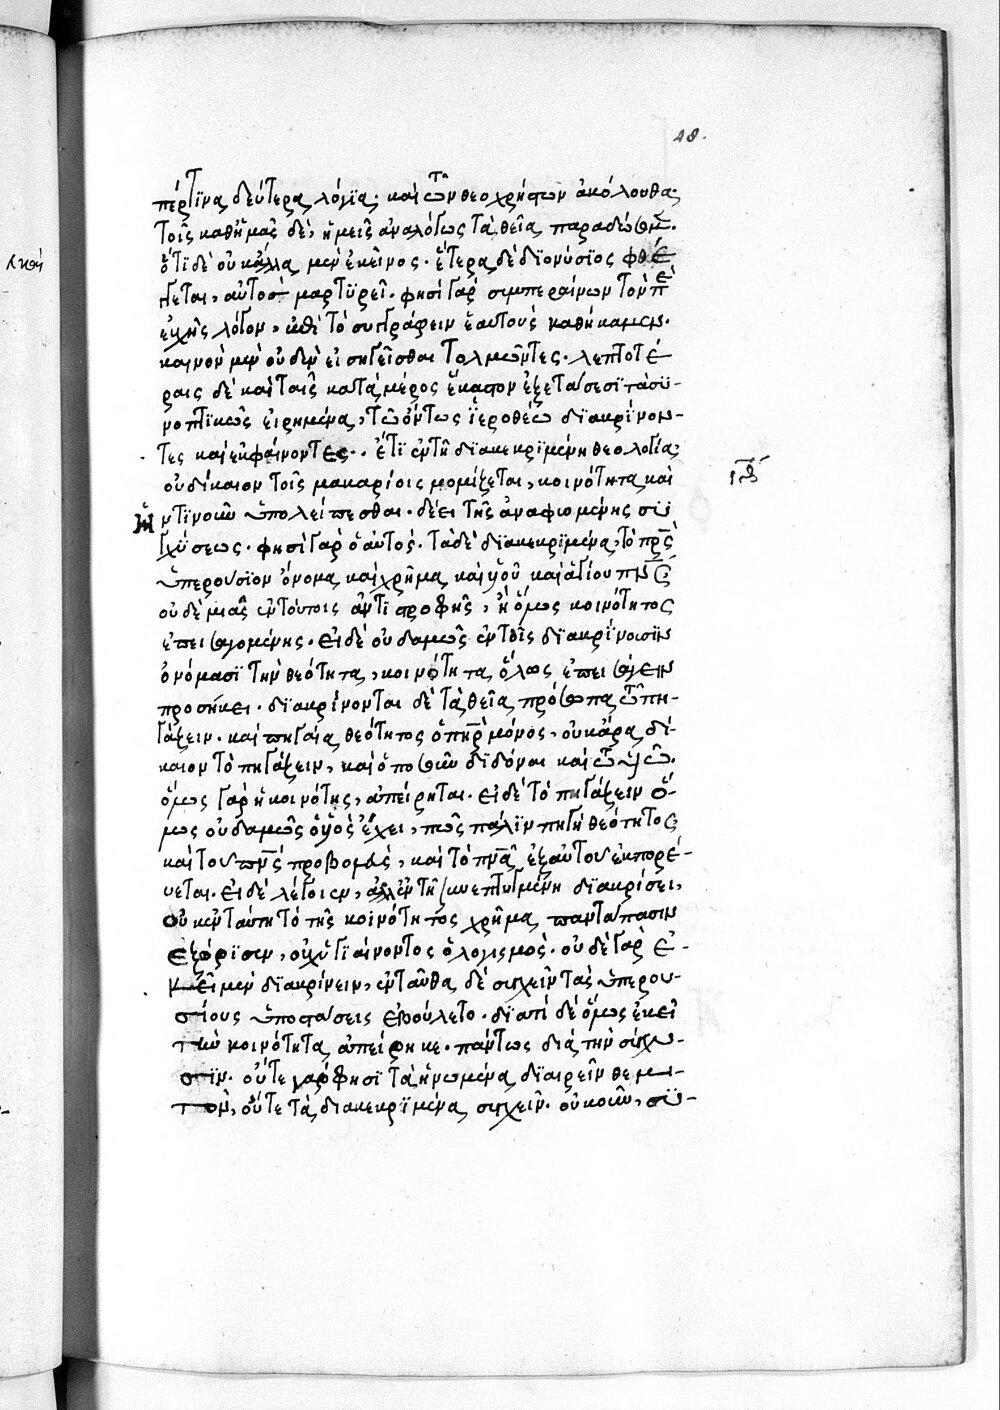 48.
πέρ τϊνα δεύτερα λόγϊα· καὶ τῶν θεοχρήστων ἀκόλουθα·
τοῖς καθ' ἡμᾶς δὲ, ἡμεῖς ἀναλόγως τὰ θεῖα παραδώσομεν.
ὅτϊ δὲ οὐκ ἄλλα μὲν ἐκεῖνος· ἕτερα δὲ δϊονύσϊος φθέγ
γεται, αὐτὸς μαρτϋρεῖ· φησὶ γὰρ συμπεραίνων τὸν περὶ
εὐχῆς λόγον, ἐπὶ τὸ συγγράφειν ἑαυτοὺς καθήκαμεν.
καινὸν μὲν οὐδὲν εἰσηγεῖσθαι τολμῶντες· λεπτοτέ
ραις δὲ καὶ ταῖς κατὰ μέρος ἕκαστον ἐξετάσεσϊ τὰ σϋ-
νοπτϊκῶς εἰρημένα, τῶ ὄντως ϊεροθέω δϊακρίνον-
τες καὶ ἐκφαίνοντες·. ἔτϊ ἐν τῆ δϊακεκρϊμένη θεολογία·
οὐ δίκαιον τοῖς μακαρίοις νομίζεται, κοινότητα καὶ
ἥντϊνοῦν ὑπολείπεσθαι· δέει τῆς ἀναφυομένης συγ
χϋσεως· φησὶ γὰρ ὁ αὐτός· τὰ δὲ δϊακεκρϊμένα, τὸ πρς
ὑπερούσϊον ὄνομα καὶ χρῆμα καὶ υἱοῦ καὶ ἁγίου πνς
οὐδεμιᾶς ἐν τούτοις ἀντϊστροφῆς, ἢ ὅμως κοινότητος
ἐπεισαγομένης· εἰ δὲ οὐδαμῶς ἐν τοῖς δϊακρίνουσϊν
ὀνόμασϊ τὴν θεότητα, κοινότητα ὅλως ἐπεισάγειν
προσήκει· δϊακρίνονται δὲ τὰ θεῖα πρόσωπα τῶ πη-
γάζειν· καὶ πηγαία θεότητος ὁ πηρ μόνος, οὐκ ἄρα δί-
καιον τὸ πηγάζειν, καὶ ὁποσοῦν δϊδόναι καὶ τῶ υἱῶ.
ὅμως γὰρ ἡ κοινότης, ἀπείρηται· εἰ δὲ τὸ πηγάζειν ὅ-
μως οὐδαμῶς ὁ υἱὸς ἔχει, πῶς πάλϊν πηγὴ θεότητος
καὶ τοῦ πνς προβολεὺς, καὶ τὸ πνα ἐξ αὐτοῦ ἐκπορέ-
υεται· εἰ δὲ λέγοιεν, ἀλλ' ἐν τῆ συνεπτυγμένη δϊακρίσει,
οὐκ ἐνταύτη τὸ τῆς κοινότητος χρῆμα παντάπασιν
ἐξώρϊσεν, οὐχ ὑγϊαίνοντος ὁ λογισμός· οὐδὲ γὰρ ἐ-
κεῖ μὲν δϊακρίνειν, ἐνταῦθα δὲ συγχεῖν τὰς ὑπερου-
σίους ὑποστάσεις ἐβούλετο· δϊατί δὲ ὅμως ἐκεῖ
τὴν κοινότητα ἀπείρηκε· πάντως διὰ τὴν σύγχυ-
σϊν· οὔτε γάρ φησϊ τὰ ἡνωμένα δϊαιρεῖν θεμι-
τὸν, οὔτε τὰ διακεκρϊμένα συγχεῖν· οὐκοῦν, συ-